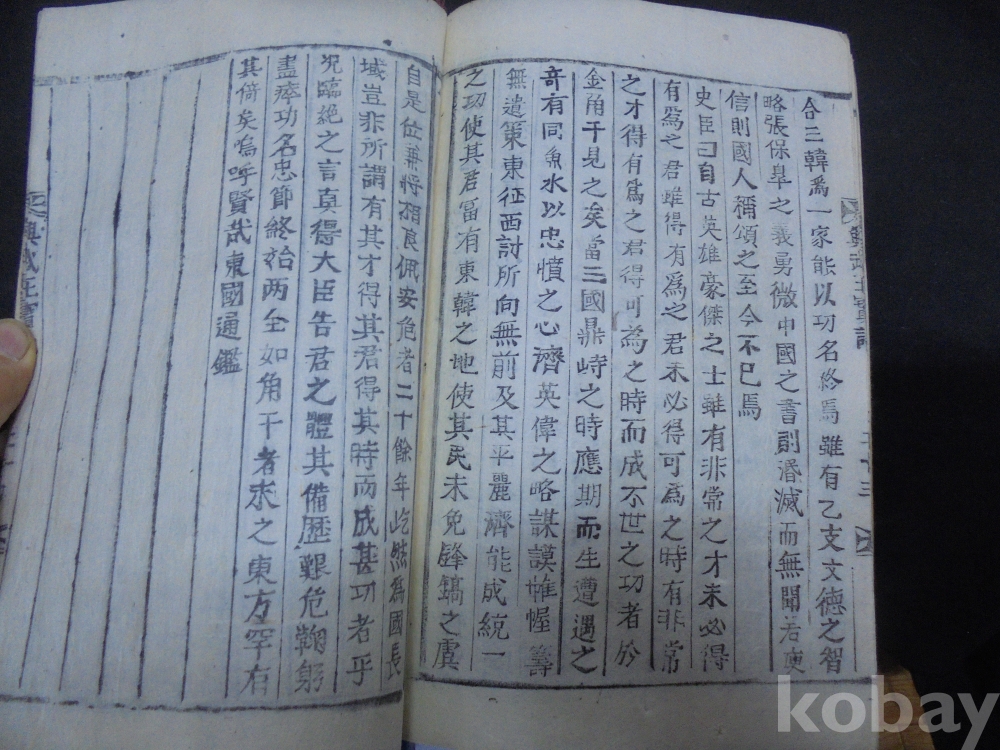 合三韓爲一家能以功名終焉雖有乙支文德之智
略張保皐之義勇微中國之書則泯滅而無聞若庾
信則國人稱頌之至今不已焉
史臣曰自古英雄豪傑之士雖有非常之才未必得
有爲之君雖得有爲之君未必得可爲之時有非常
之才得有爲之君得可爲之時而成不世之功者於
金角干見之矣當三國鼎峙之時應期而生遭遇之
奇有同魚水以忠憤之心濟英偉之略謀謨帷幄籌
無遺策東征西討所向無前及其平麗濟能成統一
之功使其君富有東韓之地使其民未免鋒鏑之虞
自是位兼將相良佩安危者二十餘年屹然爲國長
城豈非所謂有其才得其君得其時而成甚功者乎
況臨絶之言真得大臣告君之體其備歷艱危鞠躬
盡瘁功名忠節終始两全如角干者求之東方罕有
其倚矣嗚呼賢哉東國通鑑
興武王實記
kobay